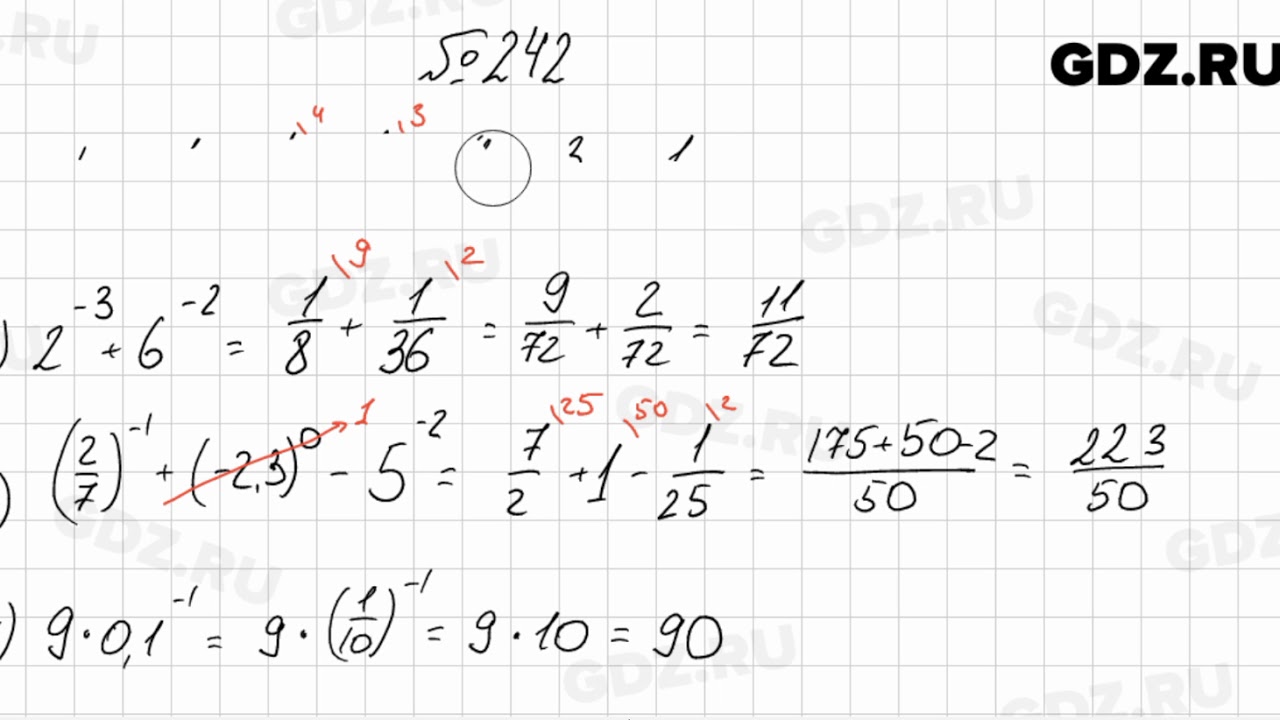 №242
GDZ.RU
\4 \3
2 1
\9 \2
) 2^-3 + 6^-2 = 1/8 + 1/36 = 9/72 + 2/72 = 11/72
1 \25 \50 \2
) (2/7)^-1 + (-2,3)^0 - 5^-2 = 7/2 + 1 - 1/25 = 175+50-2/50 = 223/50
) 9·0,1^-1 = 9·(1/10)^-1 = 9·10 = 90